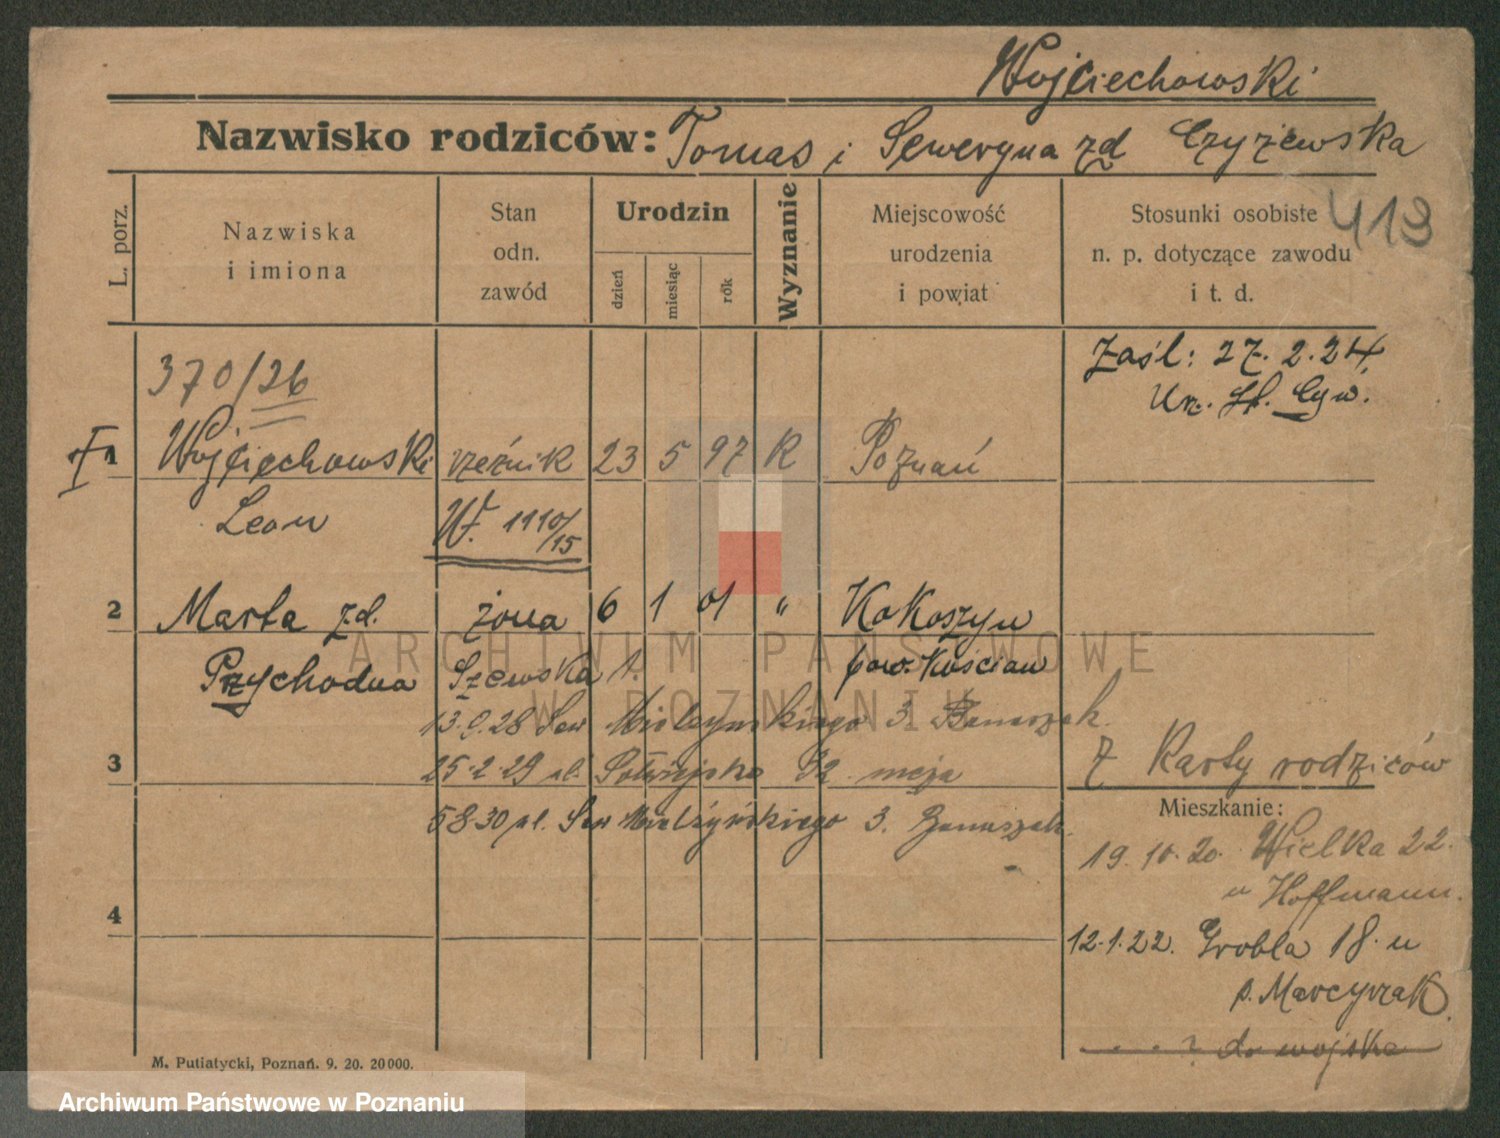 Wojciechowski
Nazwisko rodziców: Tomas i Seweryna zd Czyżewska
413
L. porz.
Nazwiska
i imiona
Stan
odn.
zawód
Urodzin
dzień
miesiąc
rok
Wyznanie
Miejscowość
urodzenia
i powiat
Stosunki osobiste
n. p. dotyczące zawodu
i t. d.
Zaśl: 27. 2. 24
Urz. St. Cyw.
370/26
1 Wojciechowski rzeźnik 23 5 97 R Poznań
Leon W. 1110/15
2 Marta z.d. żona 6 1 01 " Kokoszyn
Przychodna Szewska 1. pow. Kościan
13.9.28 Sew Mielzynskiego 3. Banaszak.
3 25.2.29 pl. 32
Z Karty rodziców
Mieszkanie:
5 8 30 pl. Sew Mielżyńskiego 3. Banaszak.
19. 10. 20. Wielka 22.
u Hoffmann.
4
12.1.22. Grobla 18. u
p. Marcyrzak.
? do wojska
M. Putiatycki, Poznań. 9. 20. 20000.
ARCHIWUM PAŃSTWOWE
W POZNANIU
Archiwum Państwowe w Poznaniu